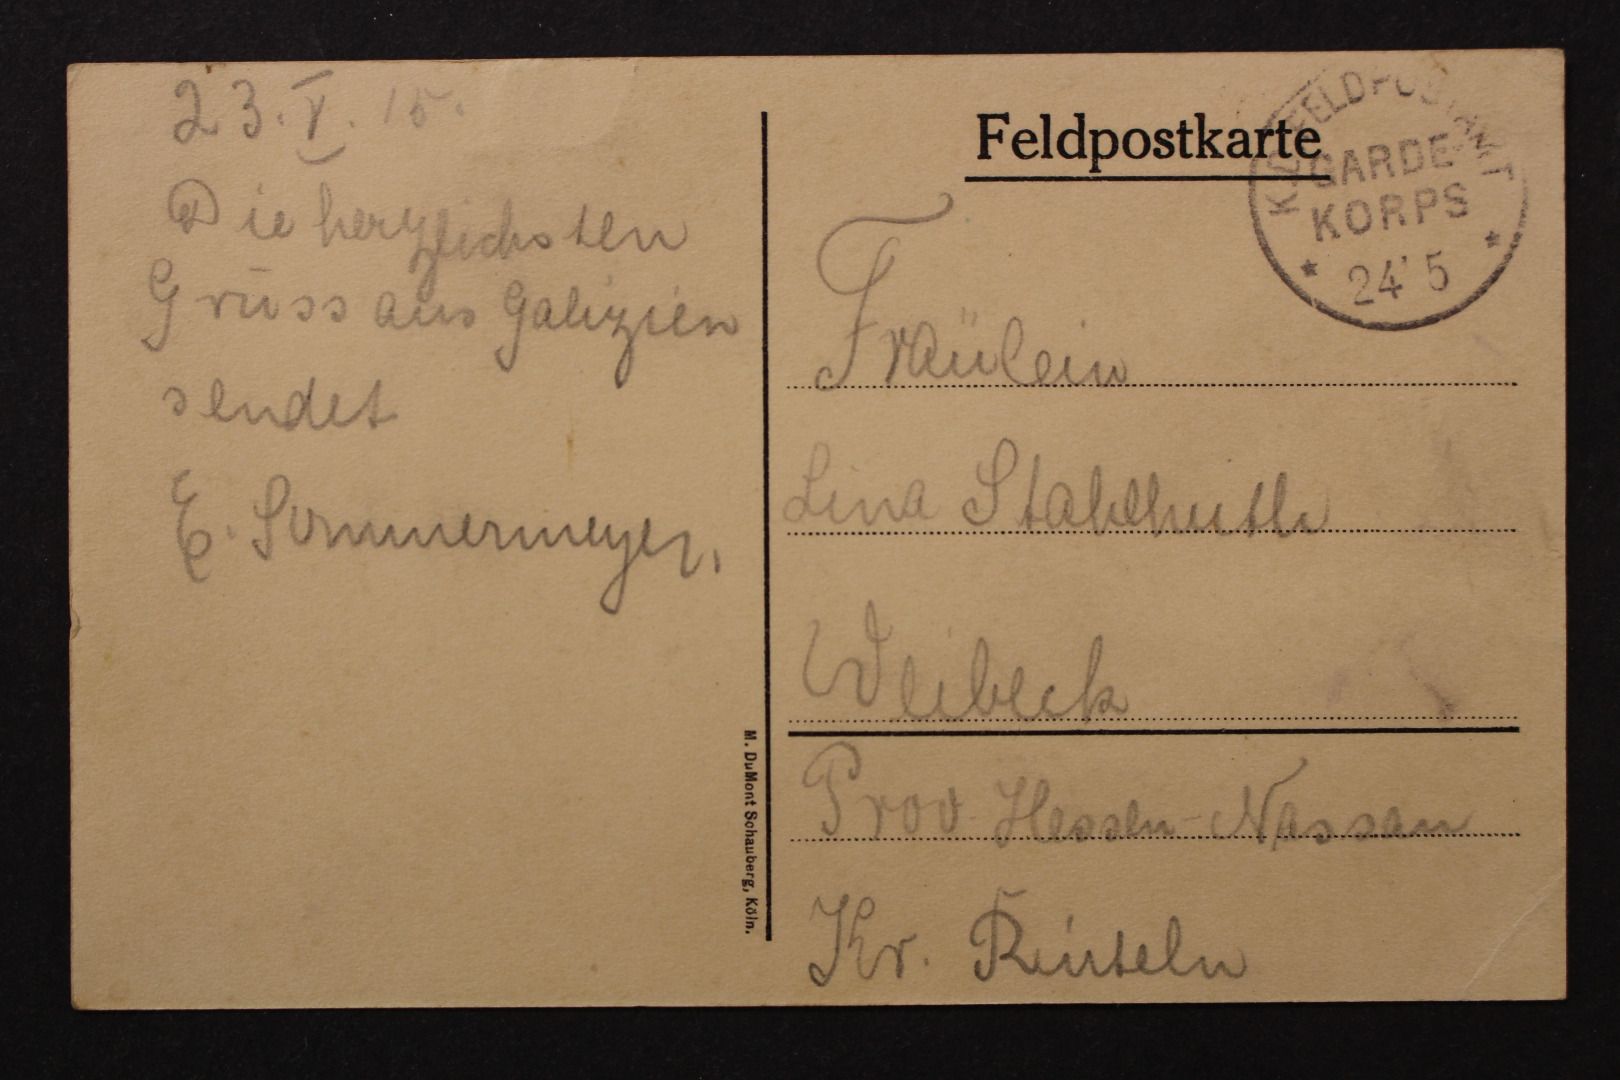 23. V. 15.
Die herzlichsten
Grüss aus Galizien
sendet
E. Sommermeyer.
M. DuMont Schauberg, Köln.
Feldpostkarte
K.D. FELDPOSTAMT
GARDE-
KORPS
* 24 5 *
Fräulein
Lina Stahlhuth
Weibeck
Prov. Hessen-Nassau
Kr. Rinteln